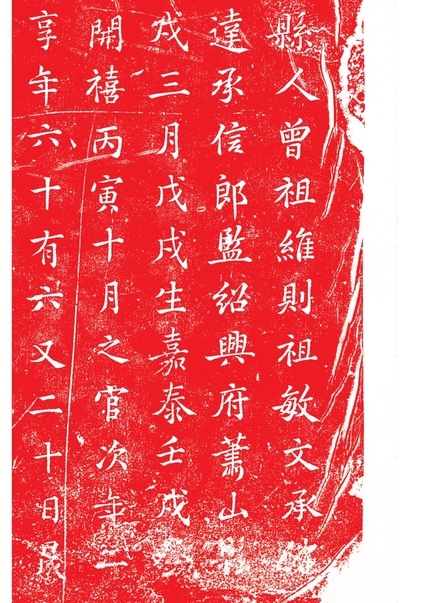 縣人曾祖維則祖敏文承
達承信郎監紹興府蕭山
戌三月戊戌生嘉泰壬戌
開禧丙寅十月之官次年二
享年六十有六又二十日